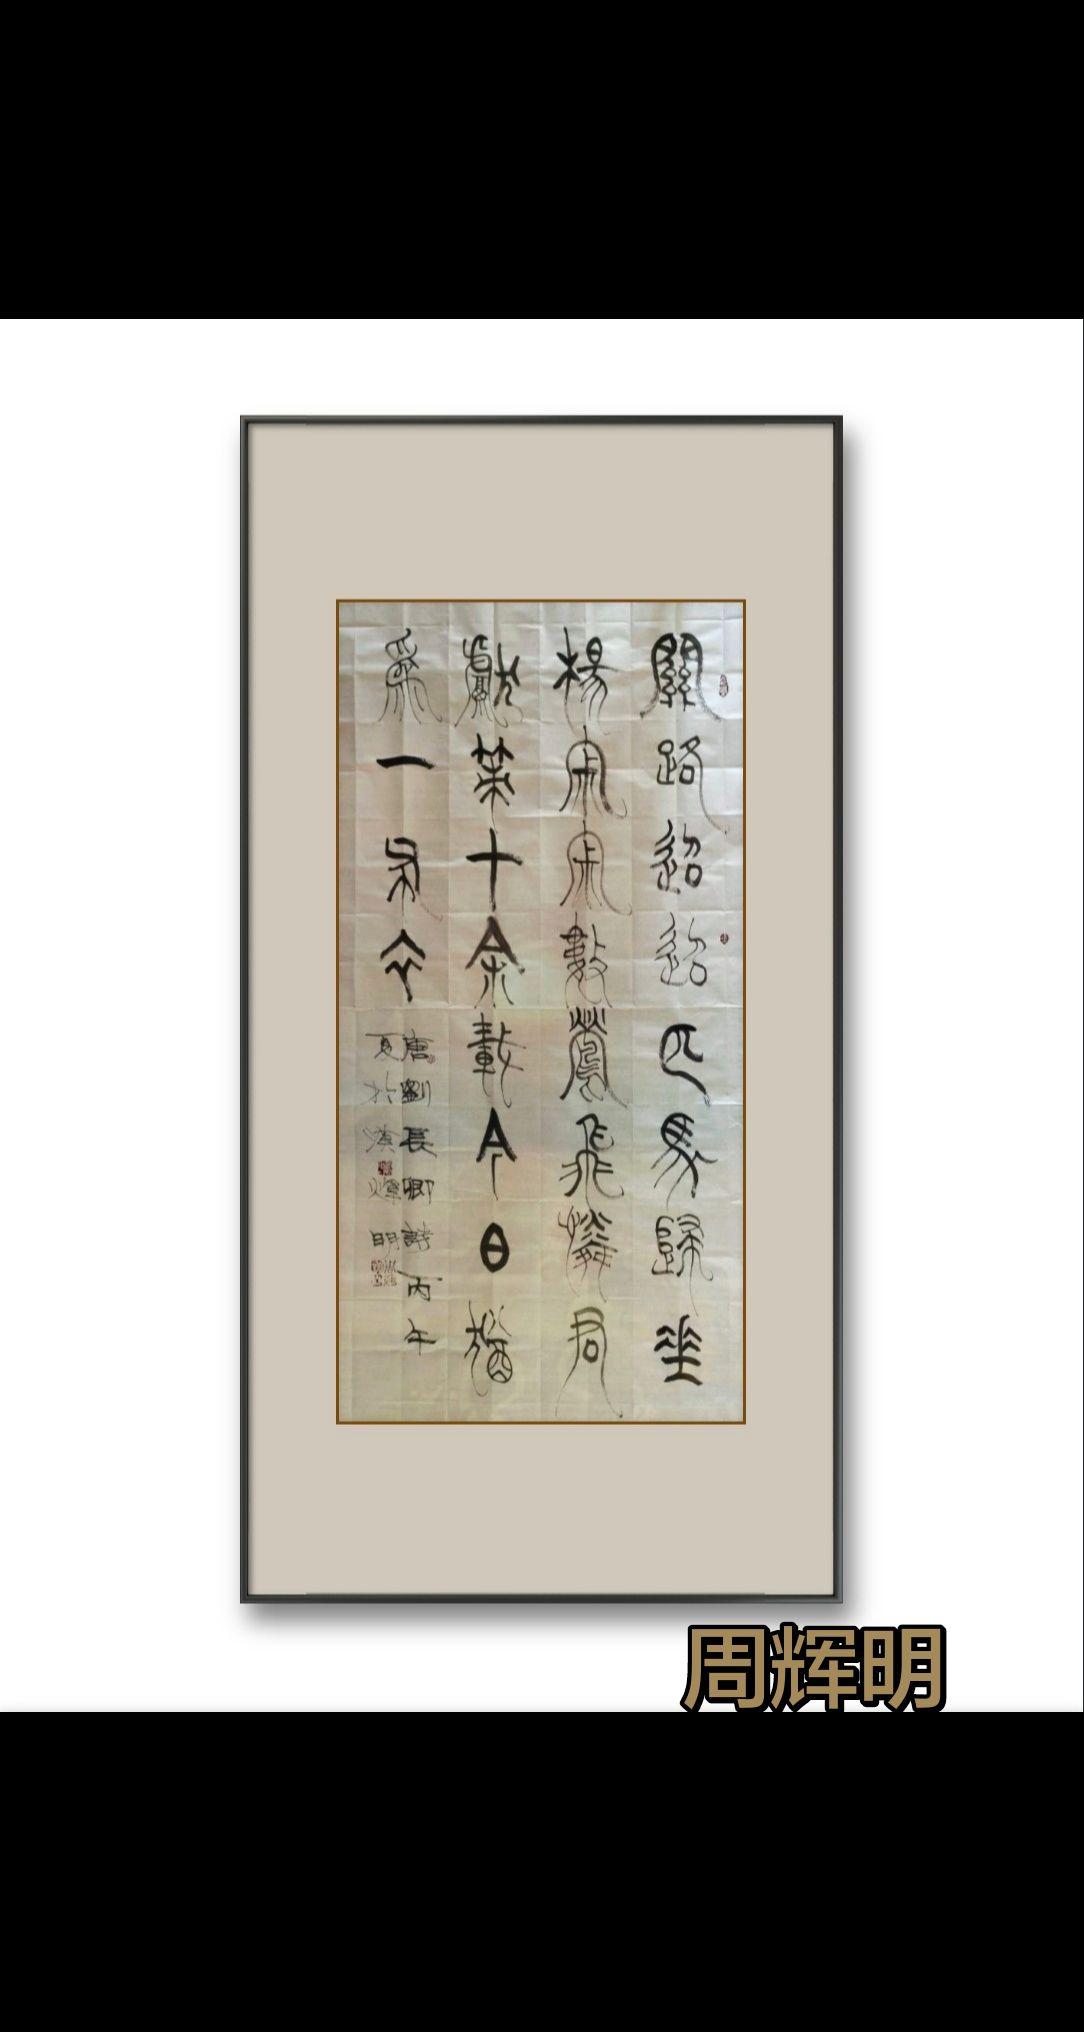 關路迢迢匹馬歸垂
楊寂寂數鶯飛憐君
獻策十余載今日猶
爲一布衣
唐劉長卿詩丙午
夏於漢煇明
周辉明